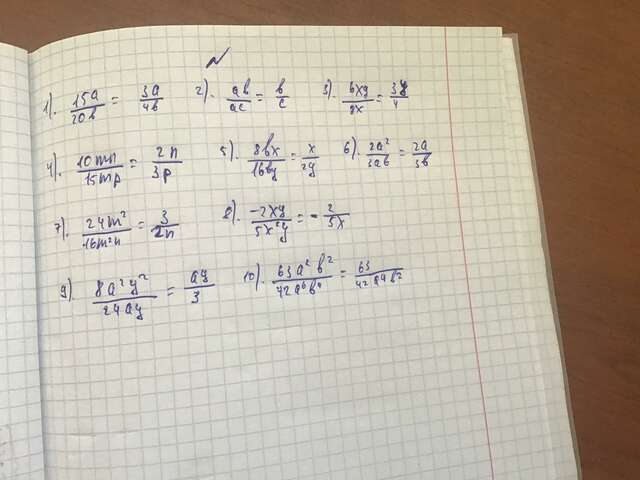 1). 15a/20в = 3a/4в 2). aв/ac = в/c 3). 6xy/8x = 3y/4
4). 10mn/15mp = 2n/3p 5). 8вx/16вy = x/2y 6). 2a²/3aв = 2a/3в
7). 24m²/16m²n = 3/2n 8). -2xy/5x²y = -2/5x
9) 8a²y²/24ay = ay/3 10). 63a²в²/42a⁶в⁴ = 63/42a⁴в²